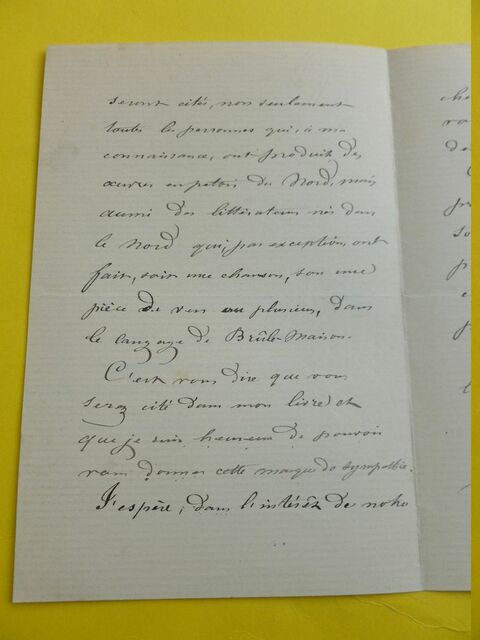 seront cités, non seulement
toutes les personnes qui, à ma
connaissance, ont produit des
œuvres en patois du Nord, mais
aussi des littérateurs nés dans
le Nord qui, par exception, ont
fait, soit une chanson, soit une
pièce de vers ou plusieurs, dans
le langage de Brûle-Maison.
C'est vous dire que vous
serez cité dans mon livre et
que je suis heureux de pouvoir
vous donner cette marque de sympathie.
J'espère, dans l'intérêt de notre
che
de
p